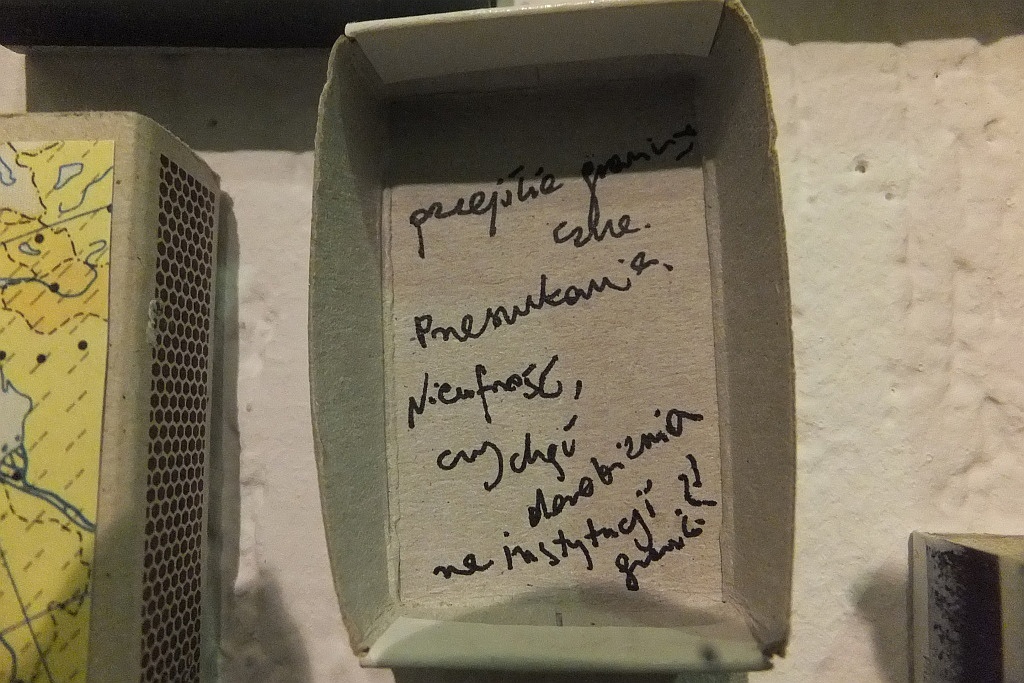 przejście granicz
czne.
Przeszukanie.
Nieufność,
czy chęć
dorobienia
na instytucji
granic ?!